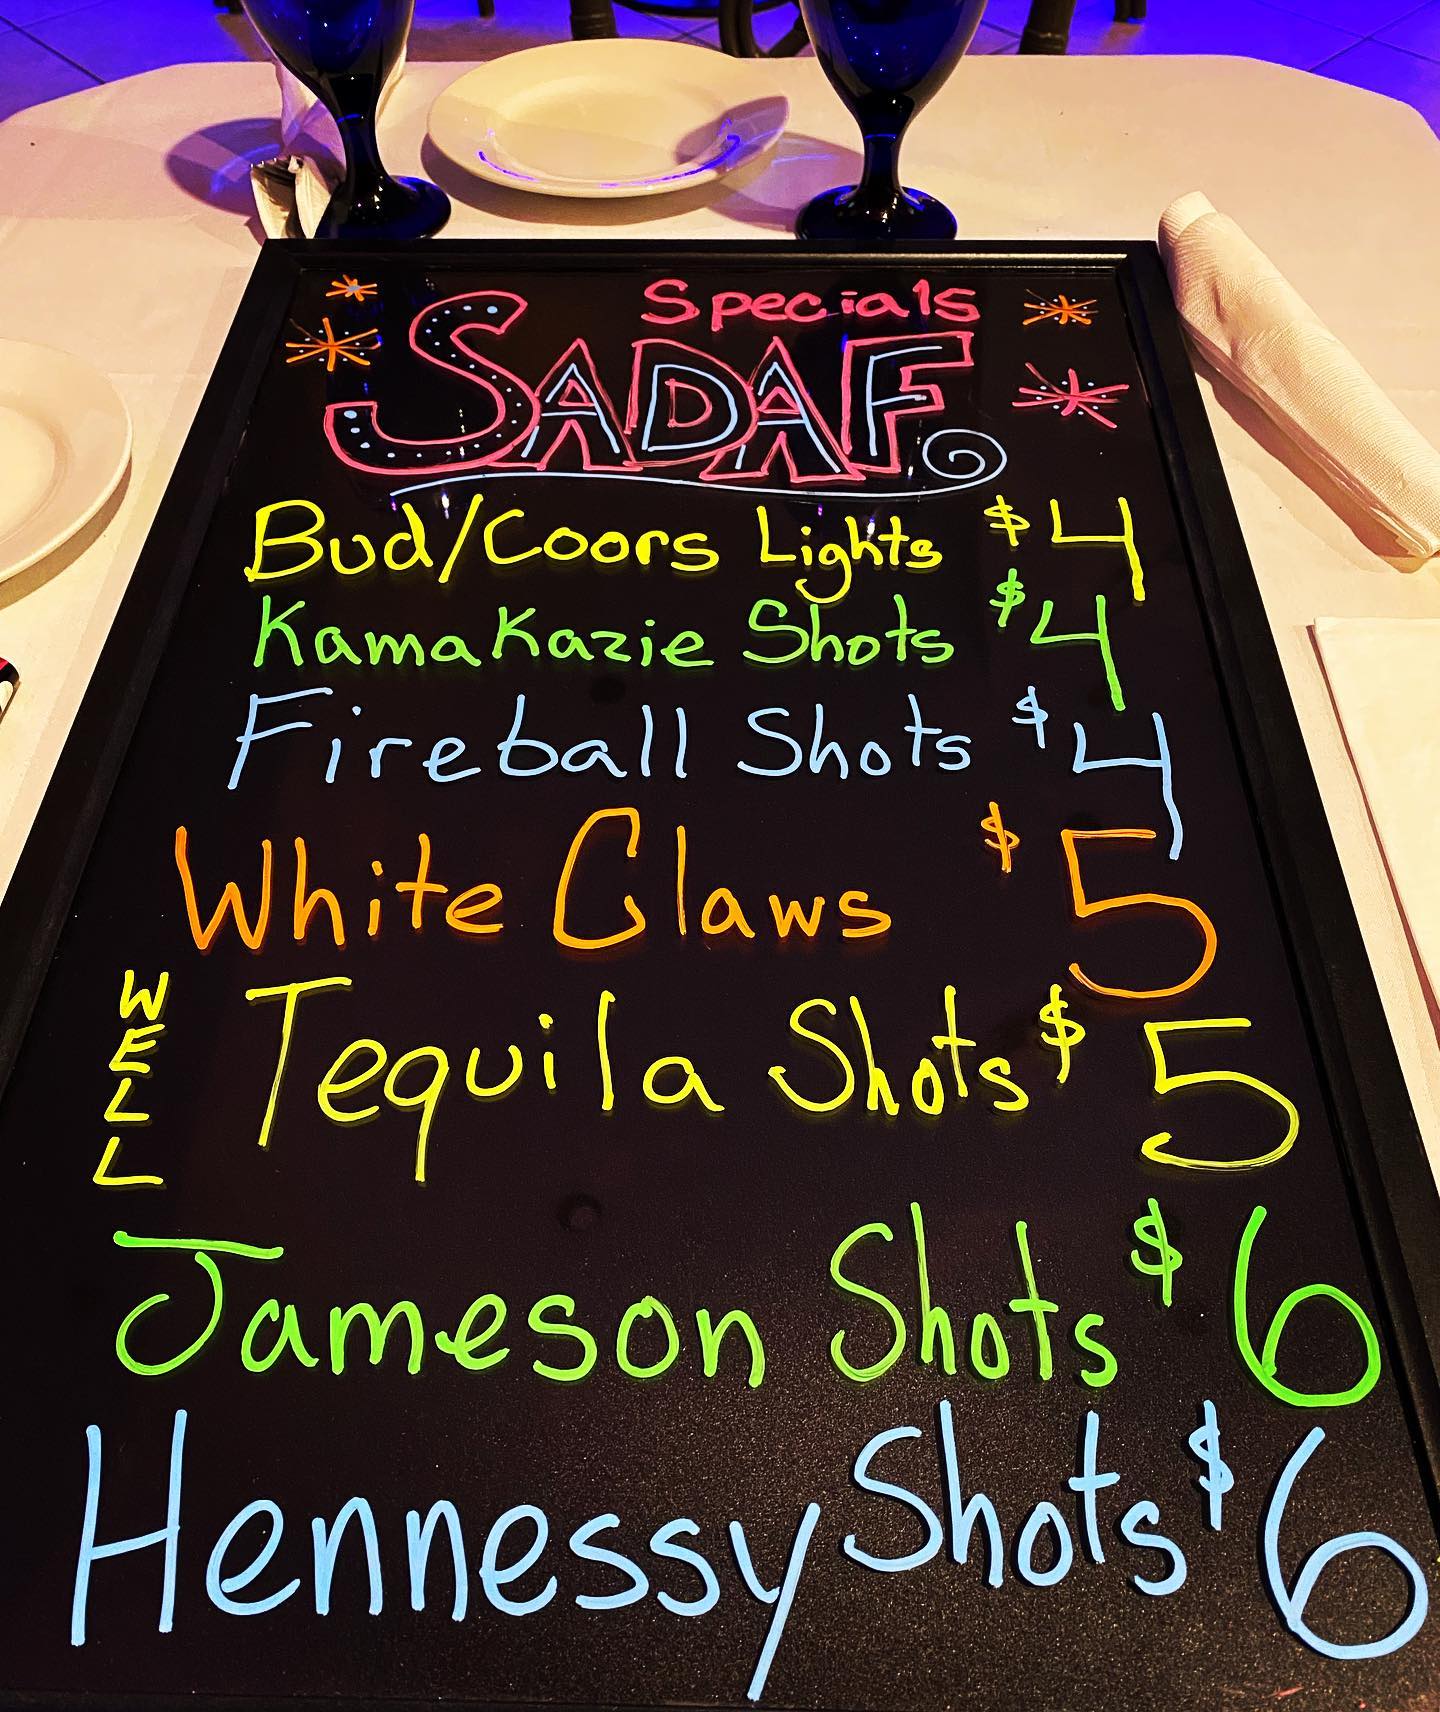 Specials
SADAF
Bud/Coors Lights $4
Kamakazie Shots $4
Fireball Shots $4
White Claws $5
WELL Tequila Shots $5
Jameson Shots $6
Hennessy Shots $6